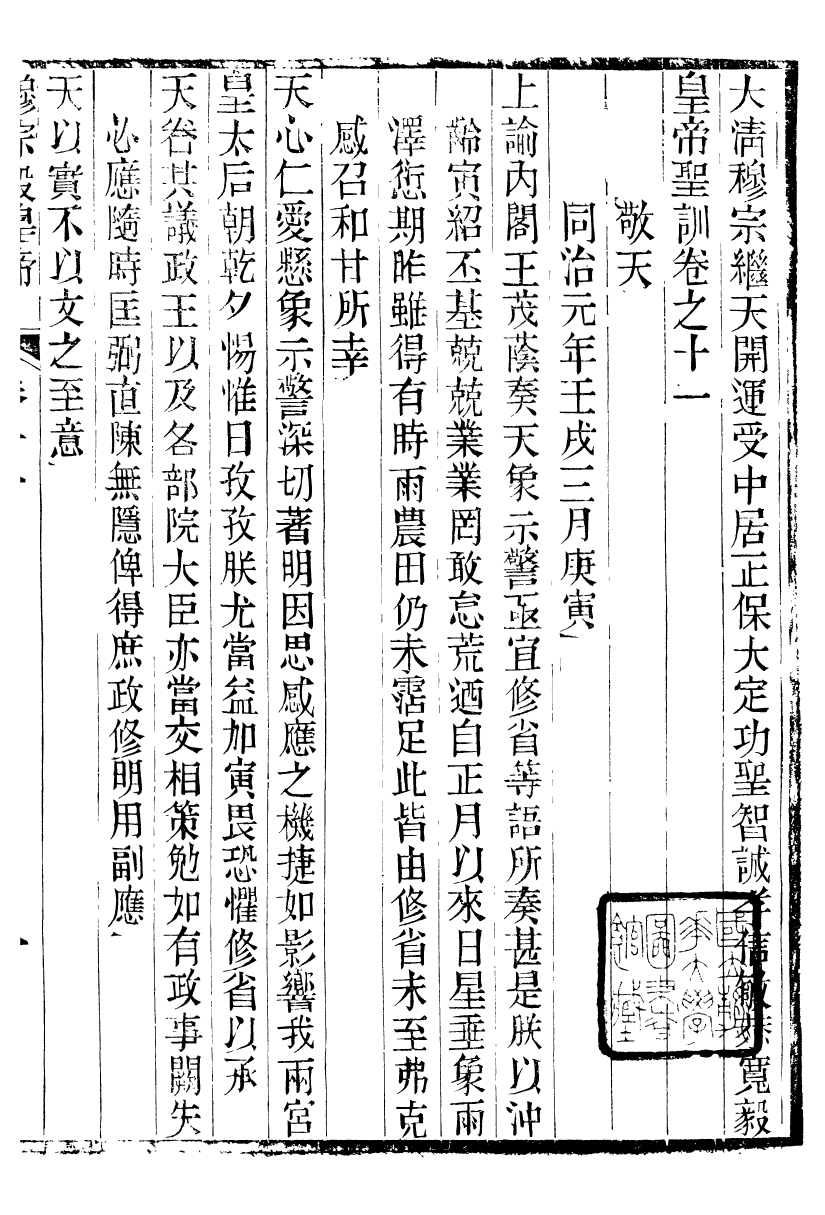 大清穆宗繼天開運受中居正保大定功聖智誠孝信敏恭寬毅
皇帝聖訓卷之十一
敬天
同治元年壬戌三月庚寅
上諭內閣王茂蔭奏天象示警亟宜修省等語所奏甚是朕以沖
齡寅紹丕基兢兢業業罔敢怠荒迺自正月以來日星垂象雨
澤愆期昨雖得有時雨農田仍未霑足此皆由修省未至弗克
感召和甘所幸
天心仁愛懸象示警深切著明因思感應之機捷如影響我兩宮
皇太后朝乾夕惕惟日孜孜朕尤當益加寅畏恐懼修省以承
天眷其議政王以及各部院大臣亦當交相策勉如有政事闕失
必應隨時匡弼直陳無隱俾得庶政修明用副應
天以實不以文之至意
穆宗毅皇帝 卷十一